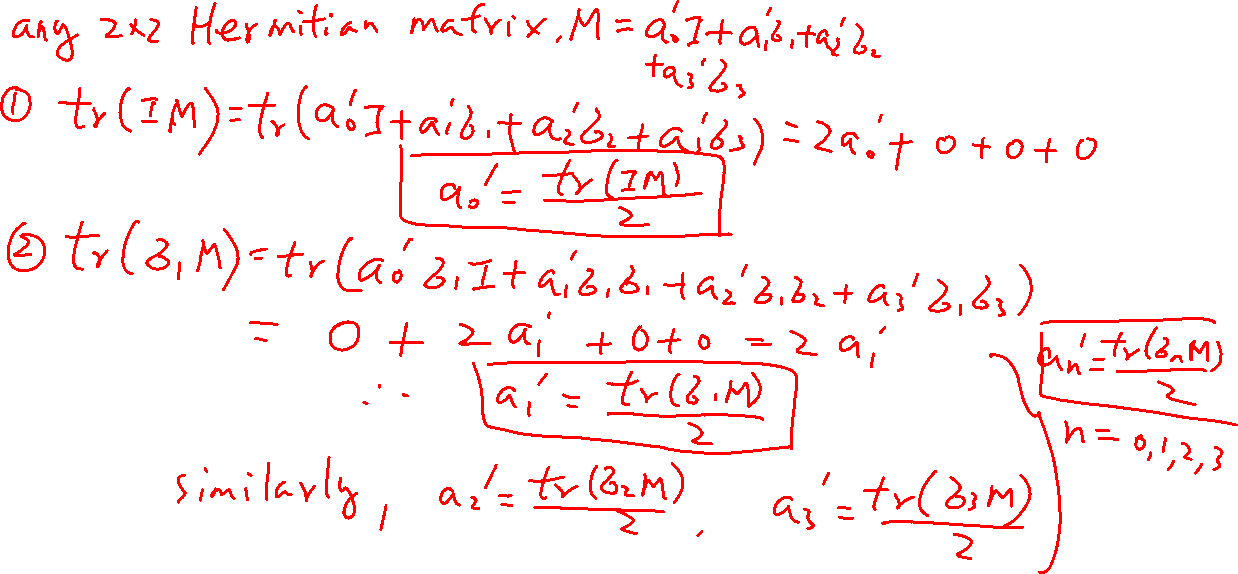 any 2×2 Hermitian matrix, M = a₀'I + a₁'σ₁ + a₂'σ₂
+ a₃'σ₃
① tr(IM) = tr(a₀'I + a₁'σ₁ + a₂'σ₂ + a₃'σ₃) = 2a₀' + 0 + 0 + 0
a₀' = tr(IM)/2
② tr(σ₁M) = tr(a₀'σ₁I + a₁'σ₁σ₁ + a₂'σ₁σ₂ + a₃'σ₁σ₃)
= 0 + 2a₁' + 0 + 0 = 2a₁'
∴ a₁' = tr(σ₁M)/2
aₙ' = tr(σₙM)/2
n = 0,1,2,3
similarly, a₂' = tr(σ₂M)/2, a₃' = tr(σ₃M)/2